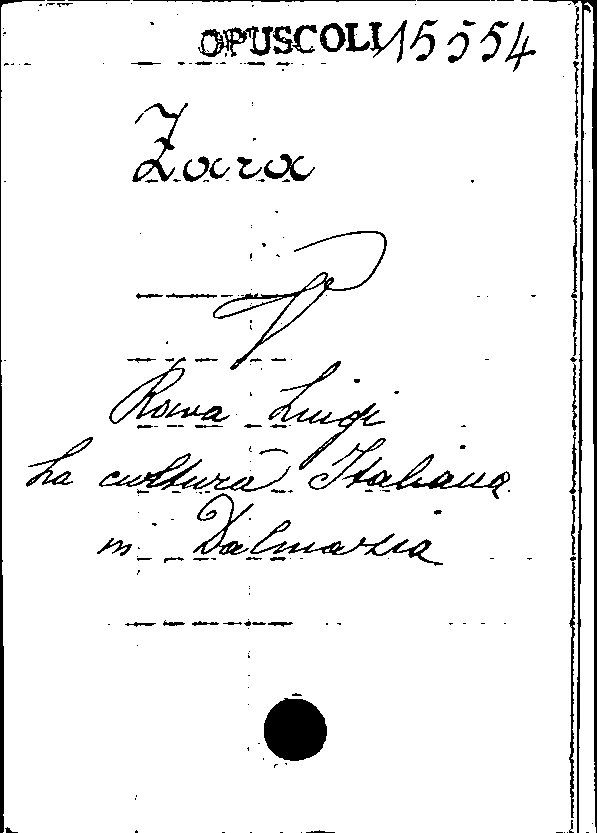 OPUSCOLI 15554
Zara
V
Rava Luigi
La cultura Italiana
in Dalmazia